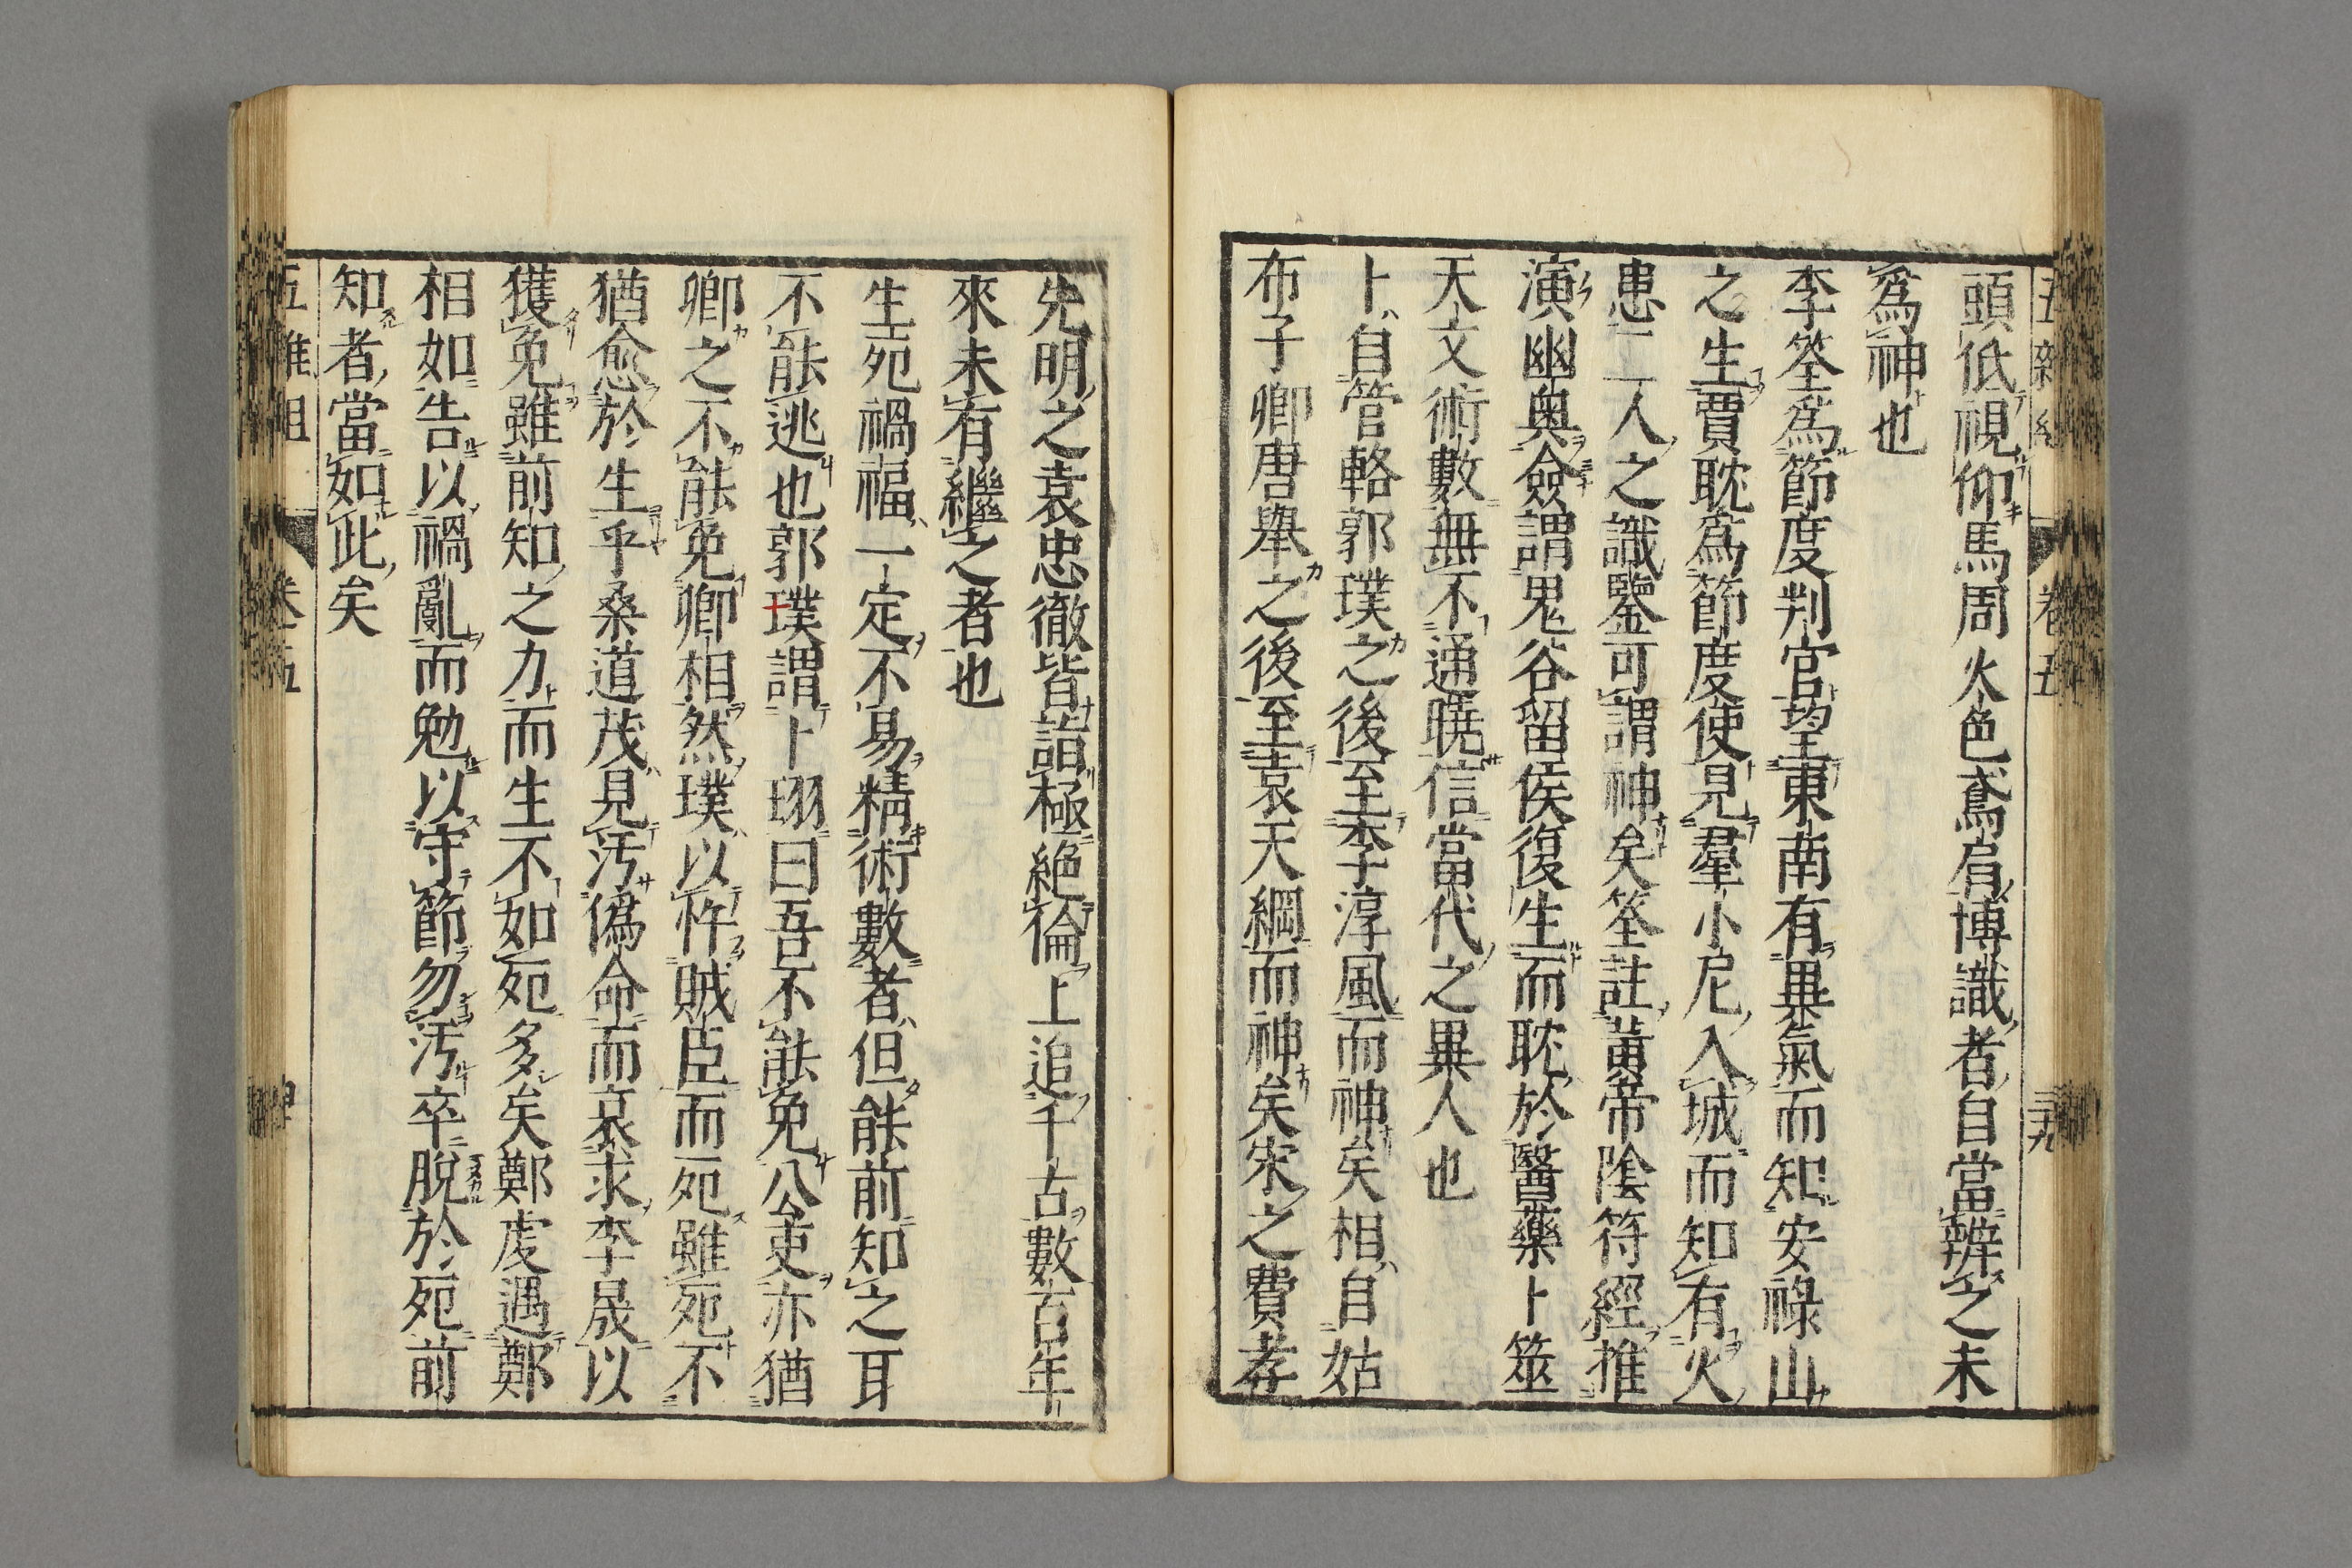 頭低視仰馬周火色鳶肩博識者自當辨之未
爲神也
李筌爲節度判官望東南有異氣而知安祿山
之生賈耽爲節度使見羣小尼入城而知有火
患二人之識鑒可謂神矣筌註黃帝陰符經推
演幽奧僉謂鬼谷留侯復生而耽於醫藥卜筮
天文術數無不通曉信當代之異人也
卜自管輅郭璞之後至李淳風而神矣相自姑
布子卿唐舉之後至袁天綱而神矣宋之費孝
先明之袁忠徹皆詣極絶倫上追千古數百年
來未有繼之者也
生死禍福一定不易精術數者但能前知之耳
不能逃也郭璞謂卜珝曰吾不能免公吏亦猶
卿之不能免卿相然璞以忤賊臣而死雖死不
猶愈於生乎桑道茂見汚僞命而哀求李晟以
獲免雖前知之力而生不如死多矣鄭虔遇鄭
相如告以禍亂而勉以守節勿汚卒脫於死前
知者當如此矣
五雜組 卷五